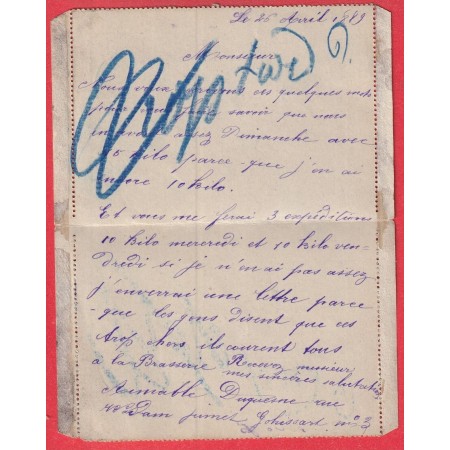 Le 26 Avril 1889
Monsieur
Nous vous ces quelques mots
pour vous savoir que nous
assez Dimanche avec
5 kilo parce que j'en ai
encore 10 kilo.
Et vous me ferai 3 expeditions
10 kilo mercredi et 10 kilo ven-
dredi si je n'en ai pas assez
j'enverrai une lettre parce
que les gens disent que ces
trop chers ils courent tous
à la Brasserie Recevez monsieur
mes sincères salutations
Aimable Duquesne
Dam Jumet Gohissart no
trop tard